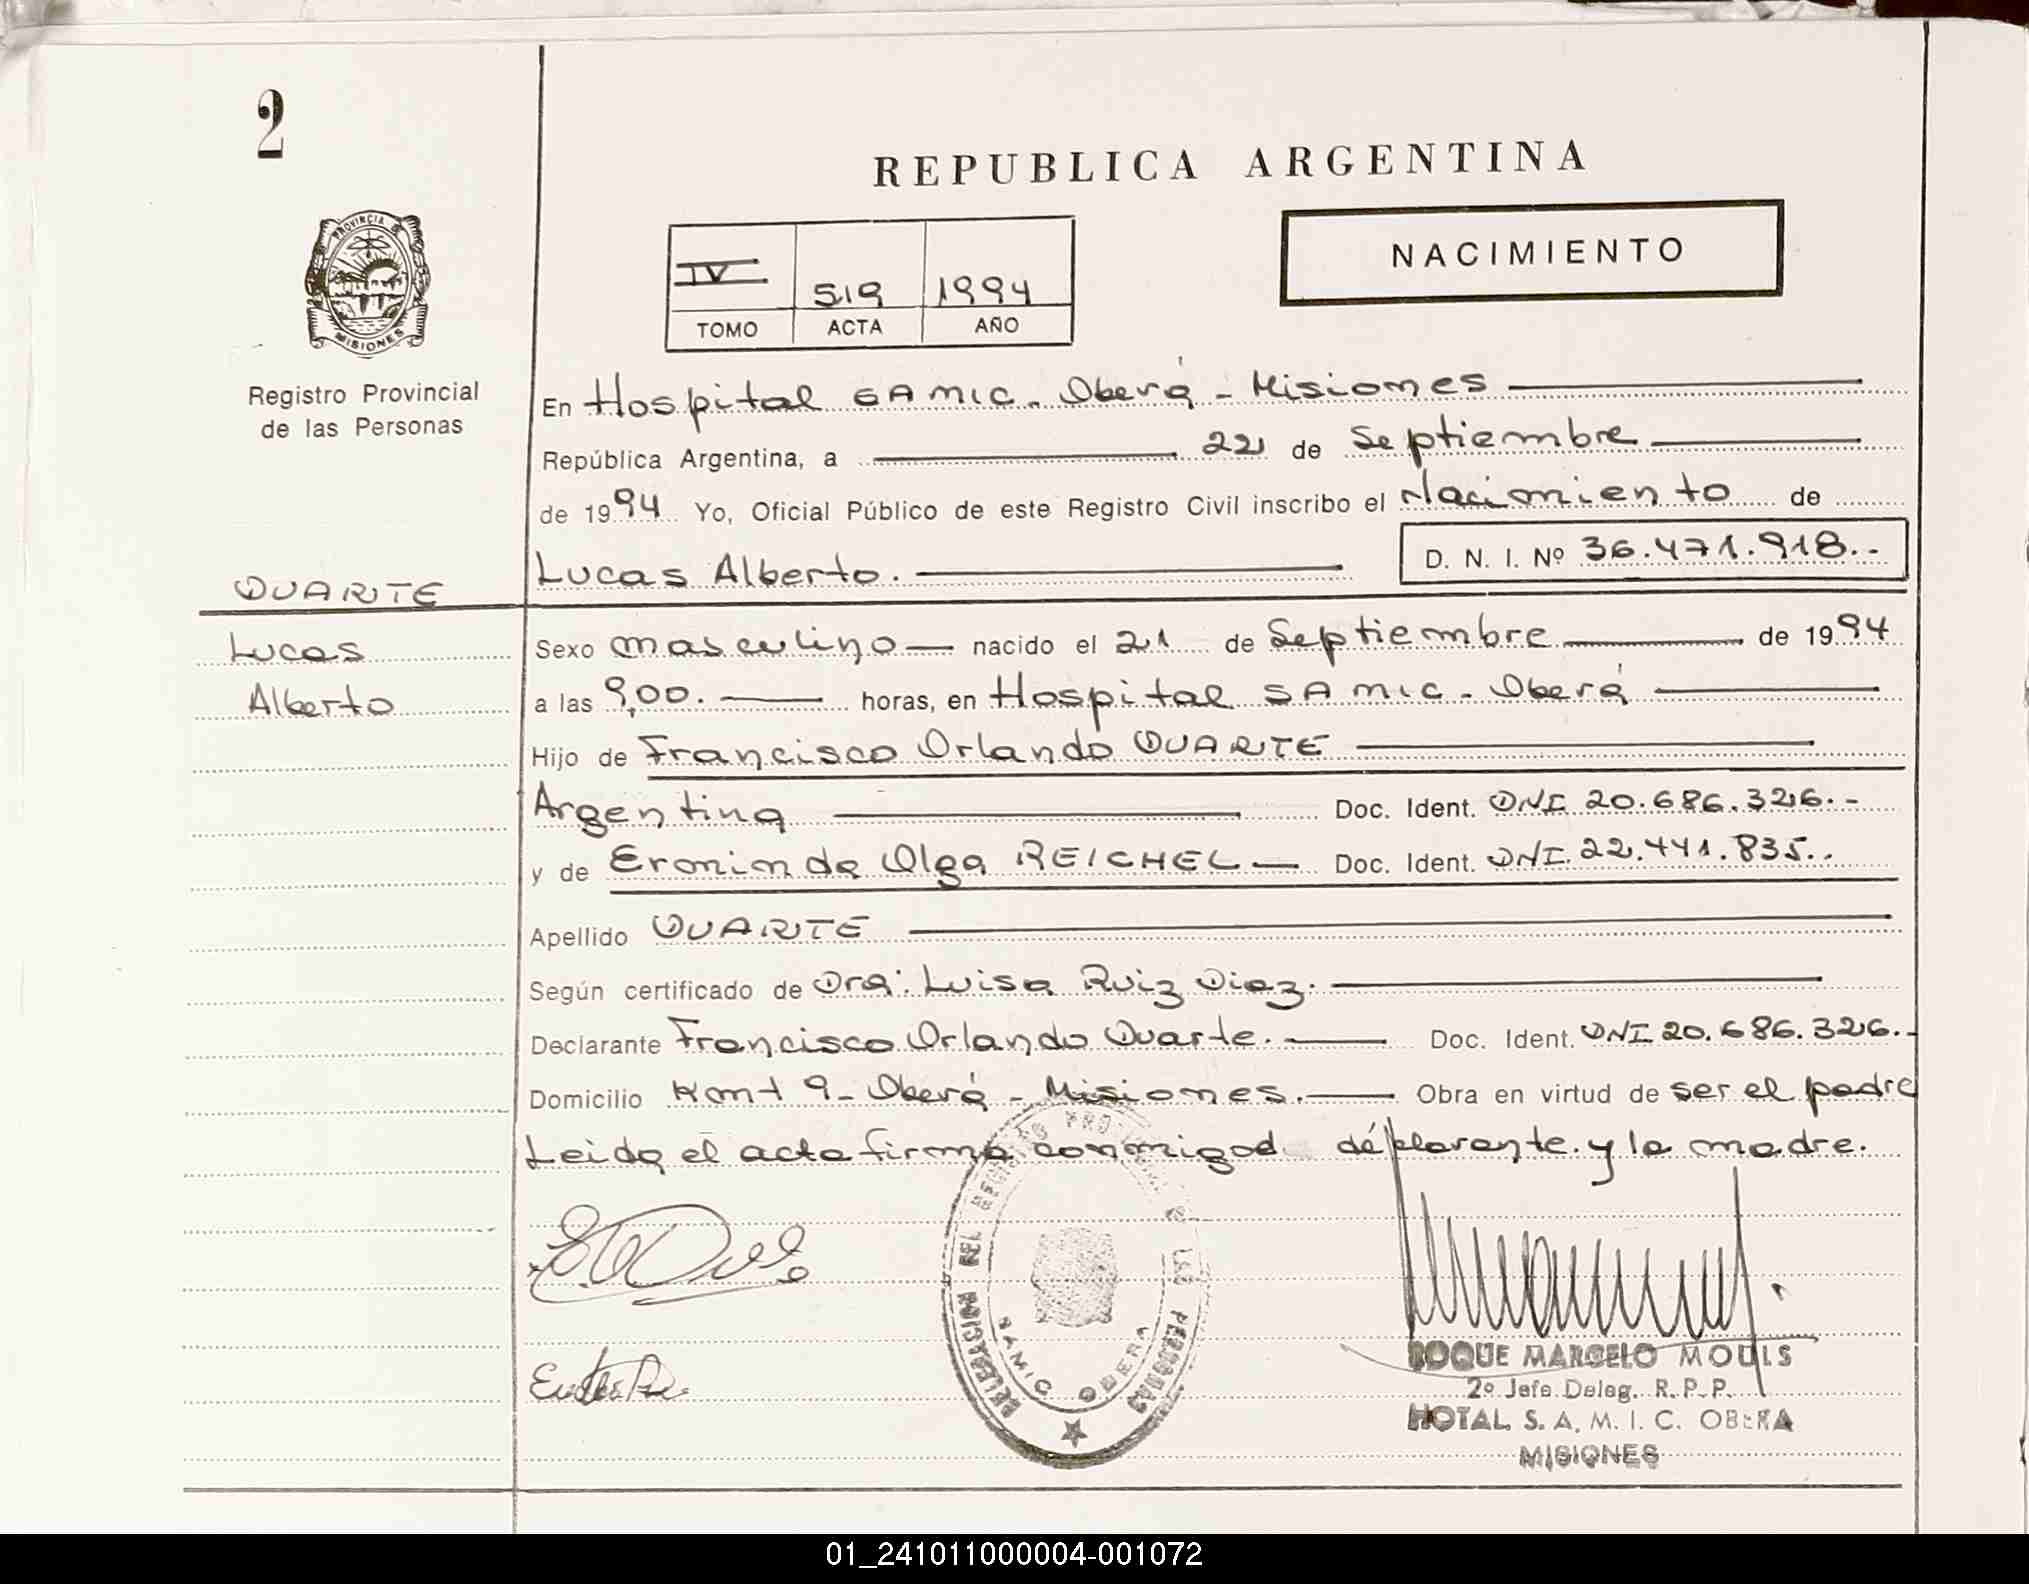 2
REPUBLICA ARGENTINA
PROVINCIA DE MISIONES
NACIMIENTO
IV 519 1994
TOMO ACTA AÑO
Registro Provincial
de las Personas
En Hospital SAMIC - Oberá - Misiones
República Argentina, a 22 de Septiembre
de 1994 Yo, Oficial Público de este Registro Civil inscribo el Nacimiento de
Lucas Alberto. D. N. I. Nº 36.471.918.-
DUARTE
Lucas
Alberto
Sexo masculino nacido el 21 de Septiembre de 1994
a las 9,00. horas, en Hospital SAMIC - Oberá
Hijo de Francisco Orlando DUARTE
Argentina Doc. Ident. DNI 20.686.326.-
y de Erominda Olga REICHEL Doc. Ident. DNI. 22.441.835..
Apellido DUARTE
Según certificado de Dra: Luisa Ruiz Diaz.
Declarante Francisco Orlando Duarte. Doc. Ident. DNI 20.686.326.-
Domicilio Kmt 9 - Oberá - Misiones. Obra en virtud de ser el padre
Leida el acta firma conmigo el déclarante y la madre.
DELEGACION DEL REGISTRO PROVINCIAL DE LAS PERSONAS
SAMIC OBERA
ROQUE MARCELO MOULS
2º Jefe Deleg. R. P. P.
HOTAL S. A. M. I. C. OBERA
MISIONES
01_241011000004-001072